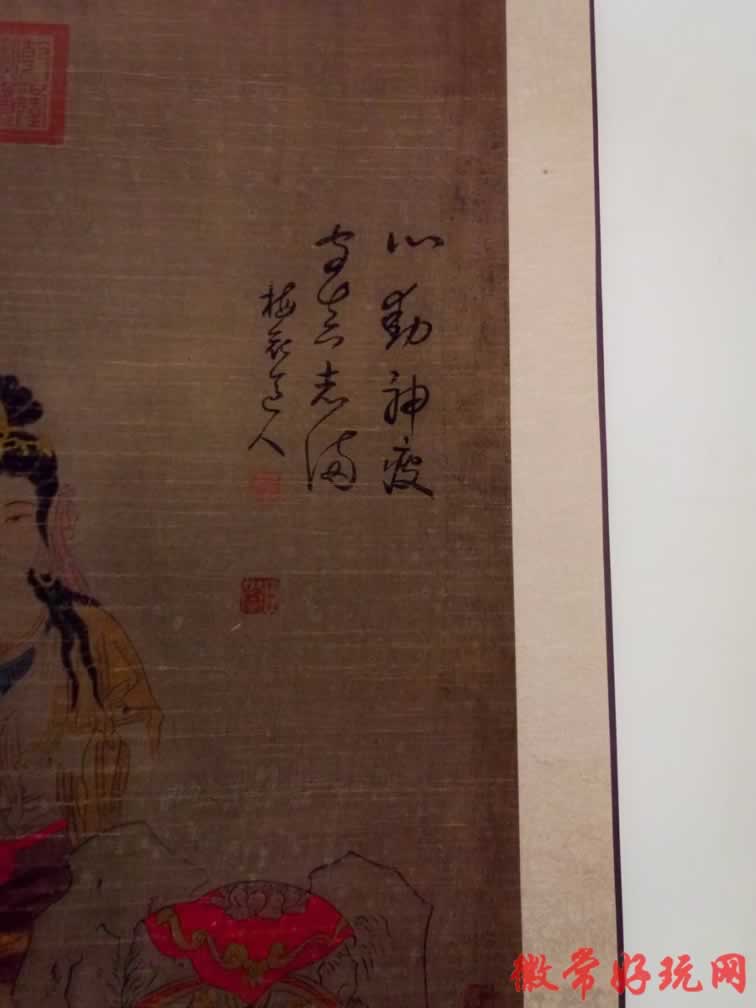 心動神疲
守真志滿
梅花道人
徽常好玩网